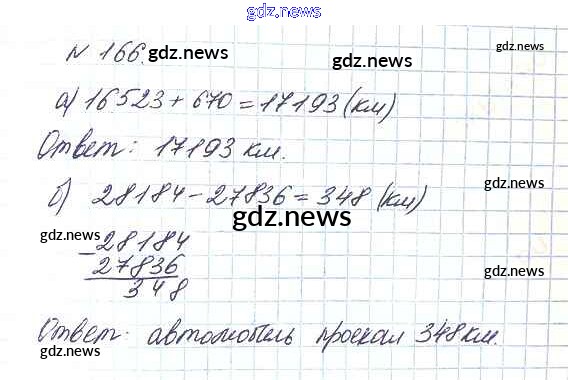 gdz.news
N 166.
gdz.news
gdz.news
а) 16523 + 670 = 17193 (км)
Ответ: 17193 км.
б) 28184 - 27836 = 348 (км)
gdz.news
gdz.news
- 28184
27836
348
gdz.news
Ответ: автомобиль проехал 348 км.
gdz.news
gdz.news